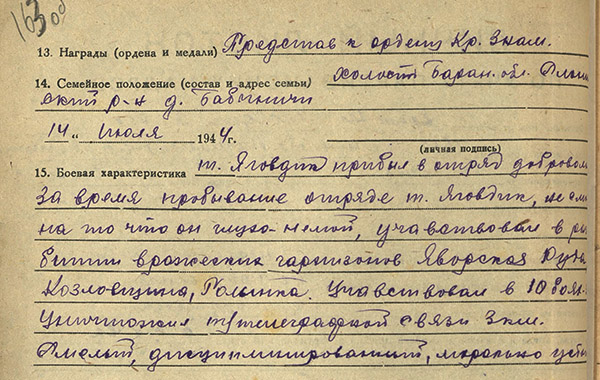 163 об
13. Награды (ордена и медали) Представ к ордену Кр. Знам.
14. Семейное положение (состав и адрес семьи) холост Баран. обл.
ский р-н д. Бабиничи
„14“ июля 1944 г.
(личная подпись)
15. Боевая характеристика т. Яговдик прибыл в отряд доброволь
За время пробывание отряде т. Яговдик, не см
на то что он глухо-немой, учавствовал в ра
битии вражеских гарнизонов Яворская Руда
Козловщина, Голынка. Учавствовал в 10 боях.
Уничтожил телеграфной связи 3 км.
Смелый, дисциплинированный, морально усто